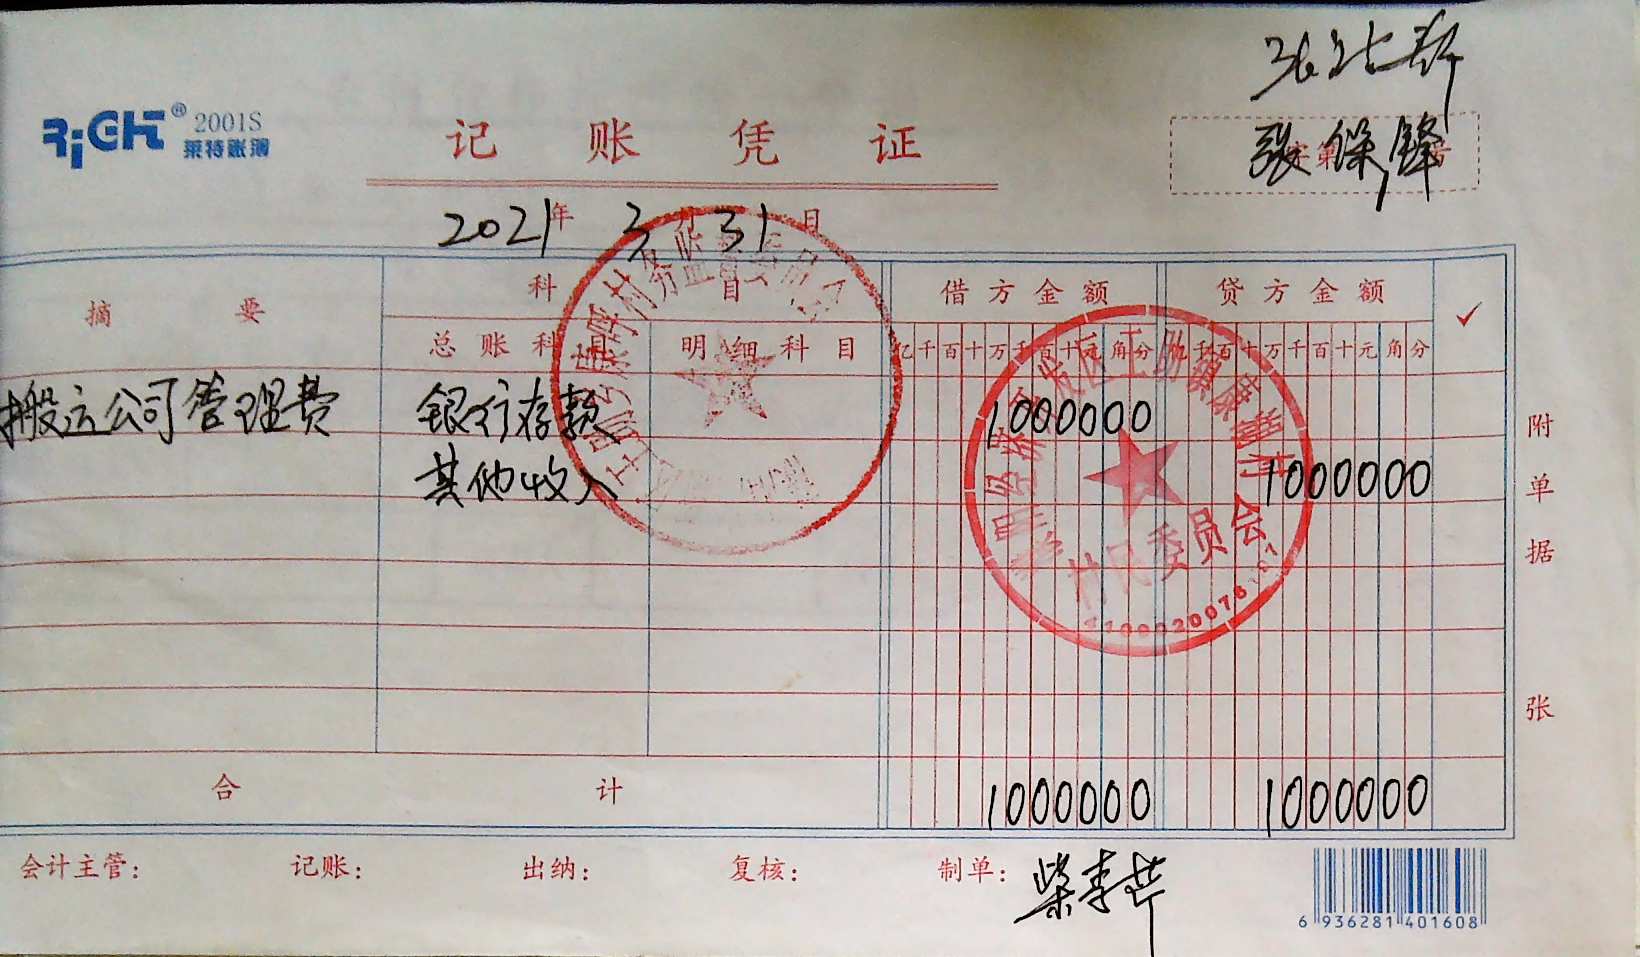 RiGHT® 2001S
莱特账簿
记账凭证
张保锋
字第 号
2021年 3月 31日
摘要 科目 借方金额 贷方金额 ✓
总账科目 明细科目 亿千百十万千百十元角分 亿千百十万千百十元角分
搬运公司管理费 银行存款 1000000
其他收入 1000000
附单据 张
村民委员会
合计 1000000 1000000
会计主管: 记账: 出纳: 复核: 制单: 柴李华
6 936281 401608